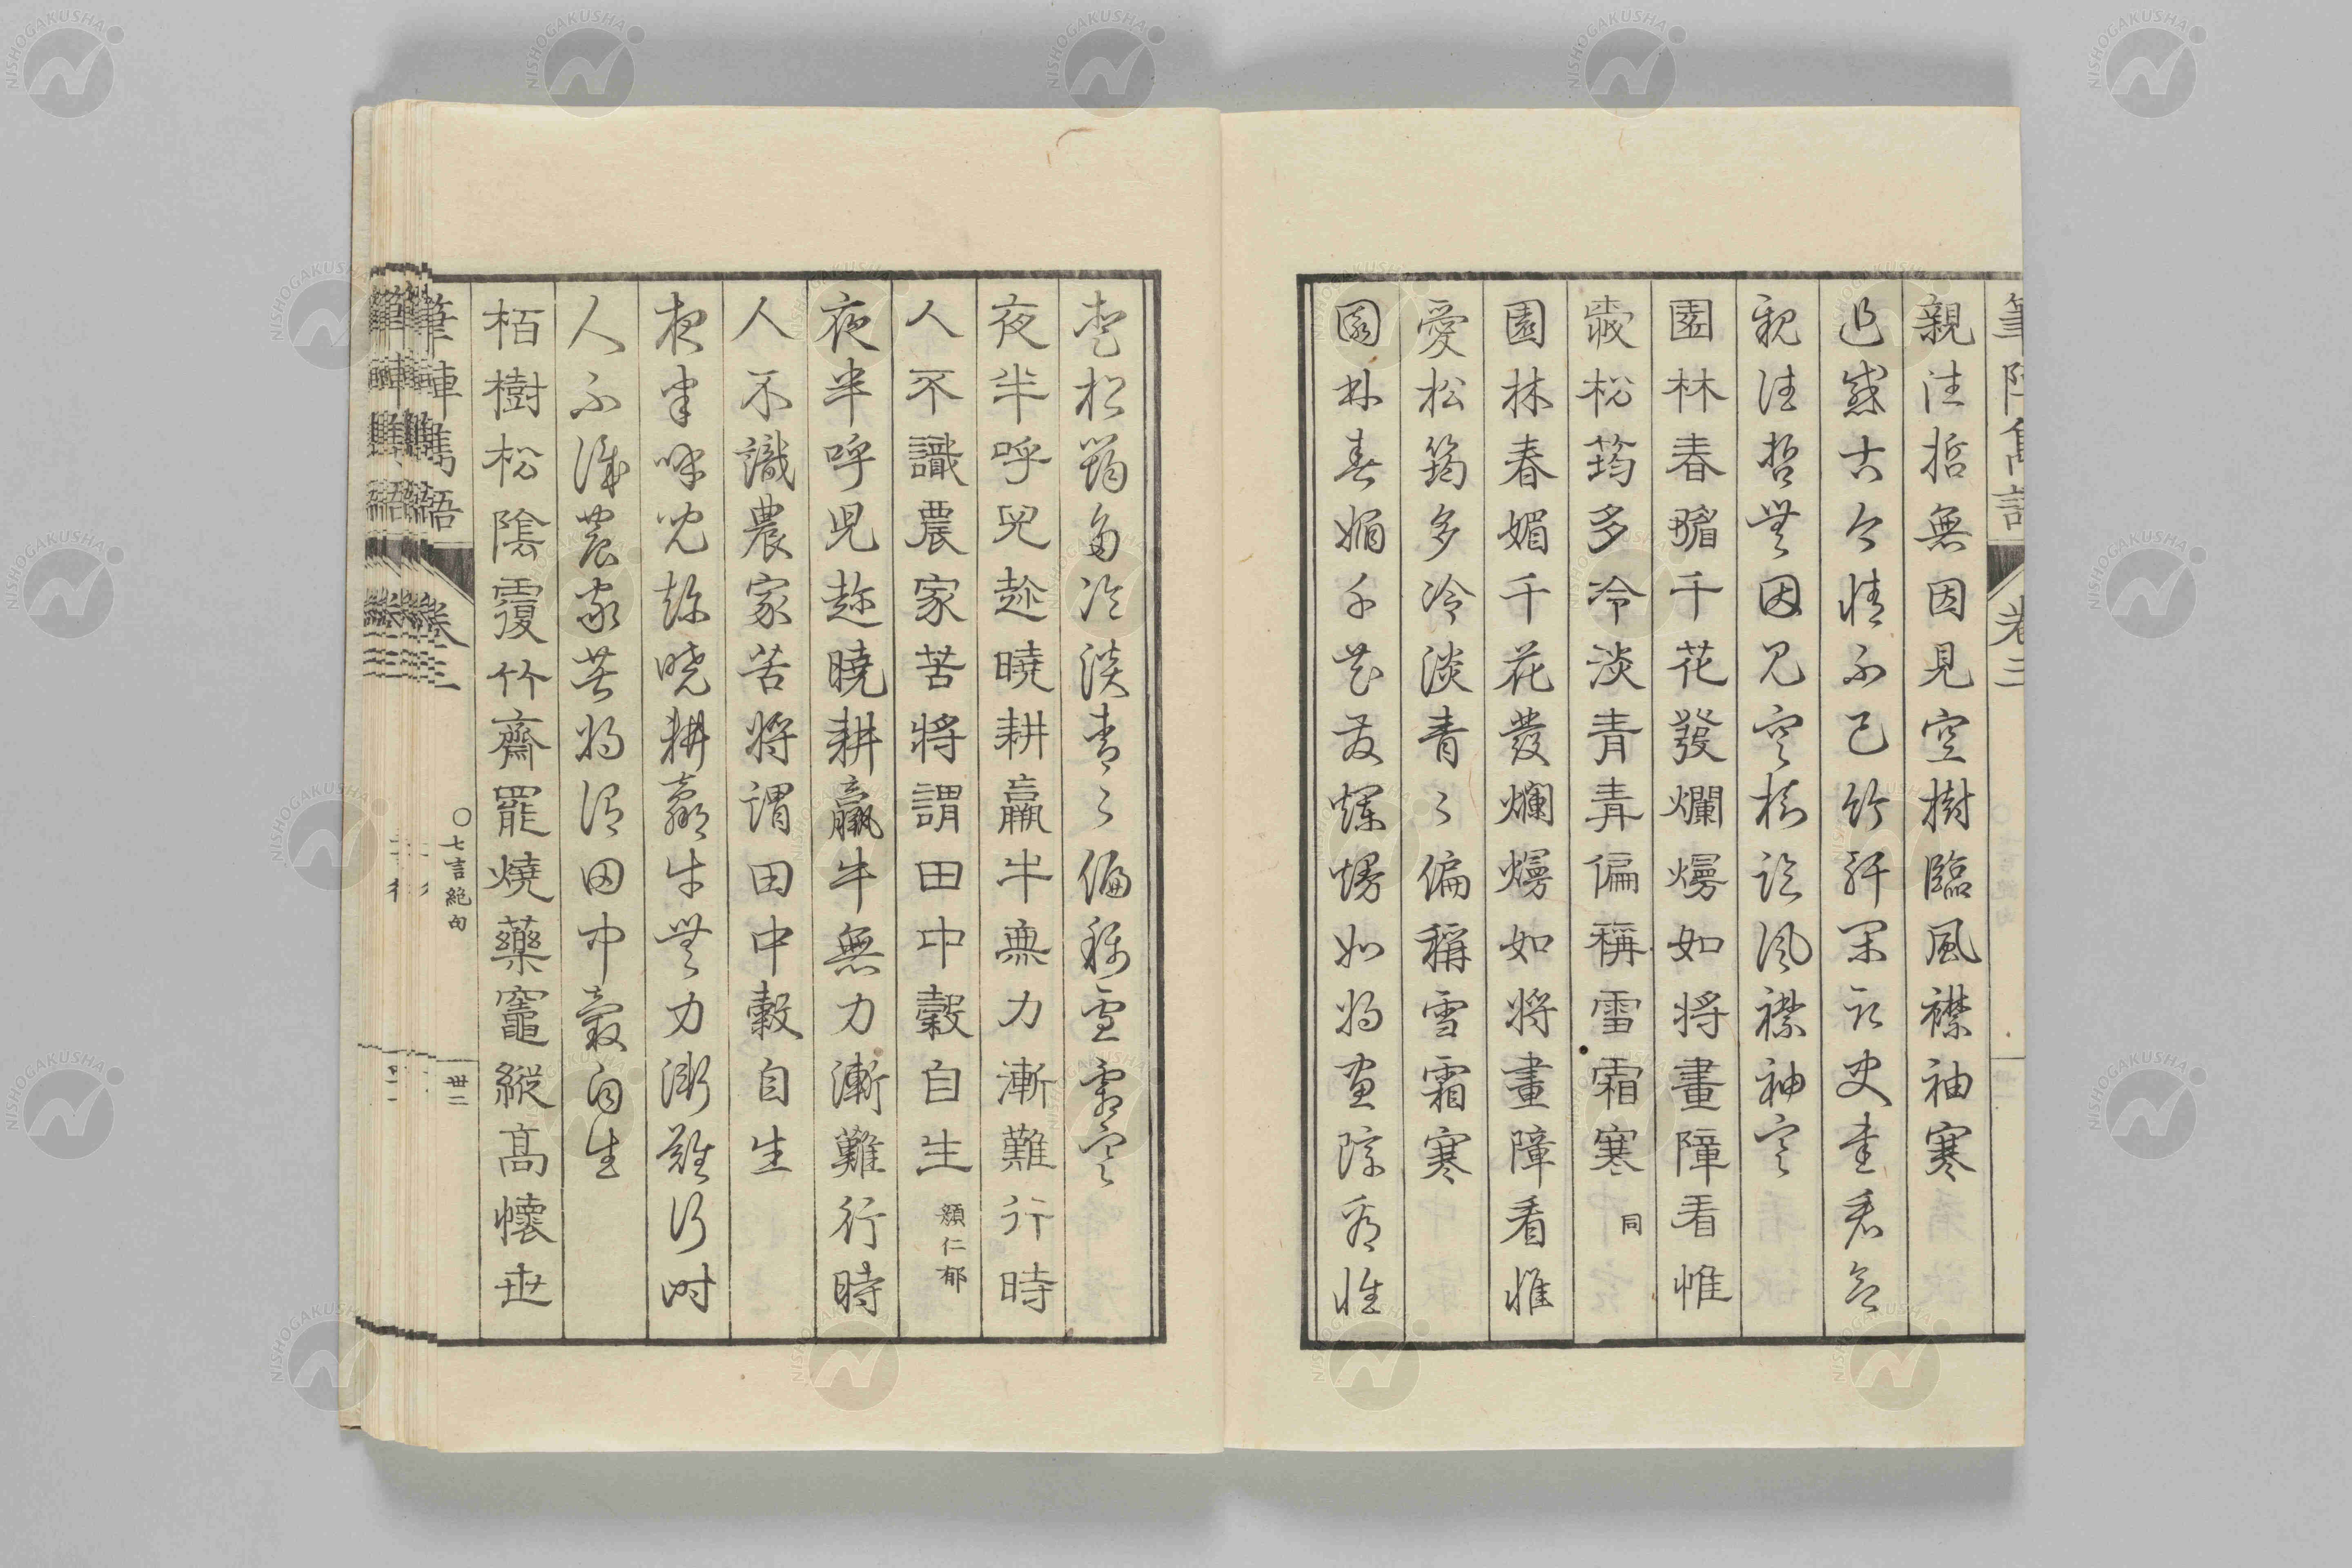 親注哲無因見空樹臨風襟袖寒
追感古今情不已竹
親注哲無因見空樹臨風襟袖寒
園林春媚千花發爛熳如將畫障看惟
愛松筠多冷淡青青偏稱雪霜寒 同
園林春媚千花發爛熳如將畫障看惟
愛松筠多冷淡青々偏稱雪霜寒
園林春媚千花發爛熳如將畫障看惟
愛松筠多冷淡青々偏稱雪霜寒
夜半呼兒趁曉耕羸牛無力漸難行時
人不識農家苦將謂田中穀自生 顏仁郁
夜半呼兒趁曉耕羸牛無力漸難行時
人不識農家苦將謂田中穀自生
夜半呼兒趁曉耕羸牛無力漸難行時
人不識農家苦將謂田中穀自生
栢樹松陰覆竹齋罷燒藥竈縱高懷世
筆陣雋語 卷三 〇七言絶句 丗二
NISHOGAKUSHA